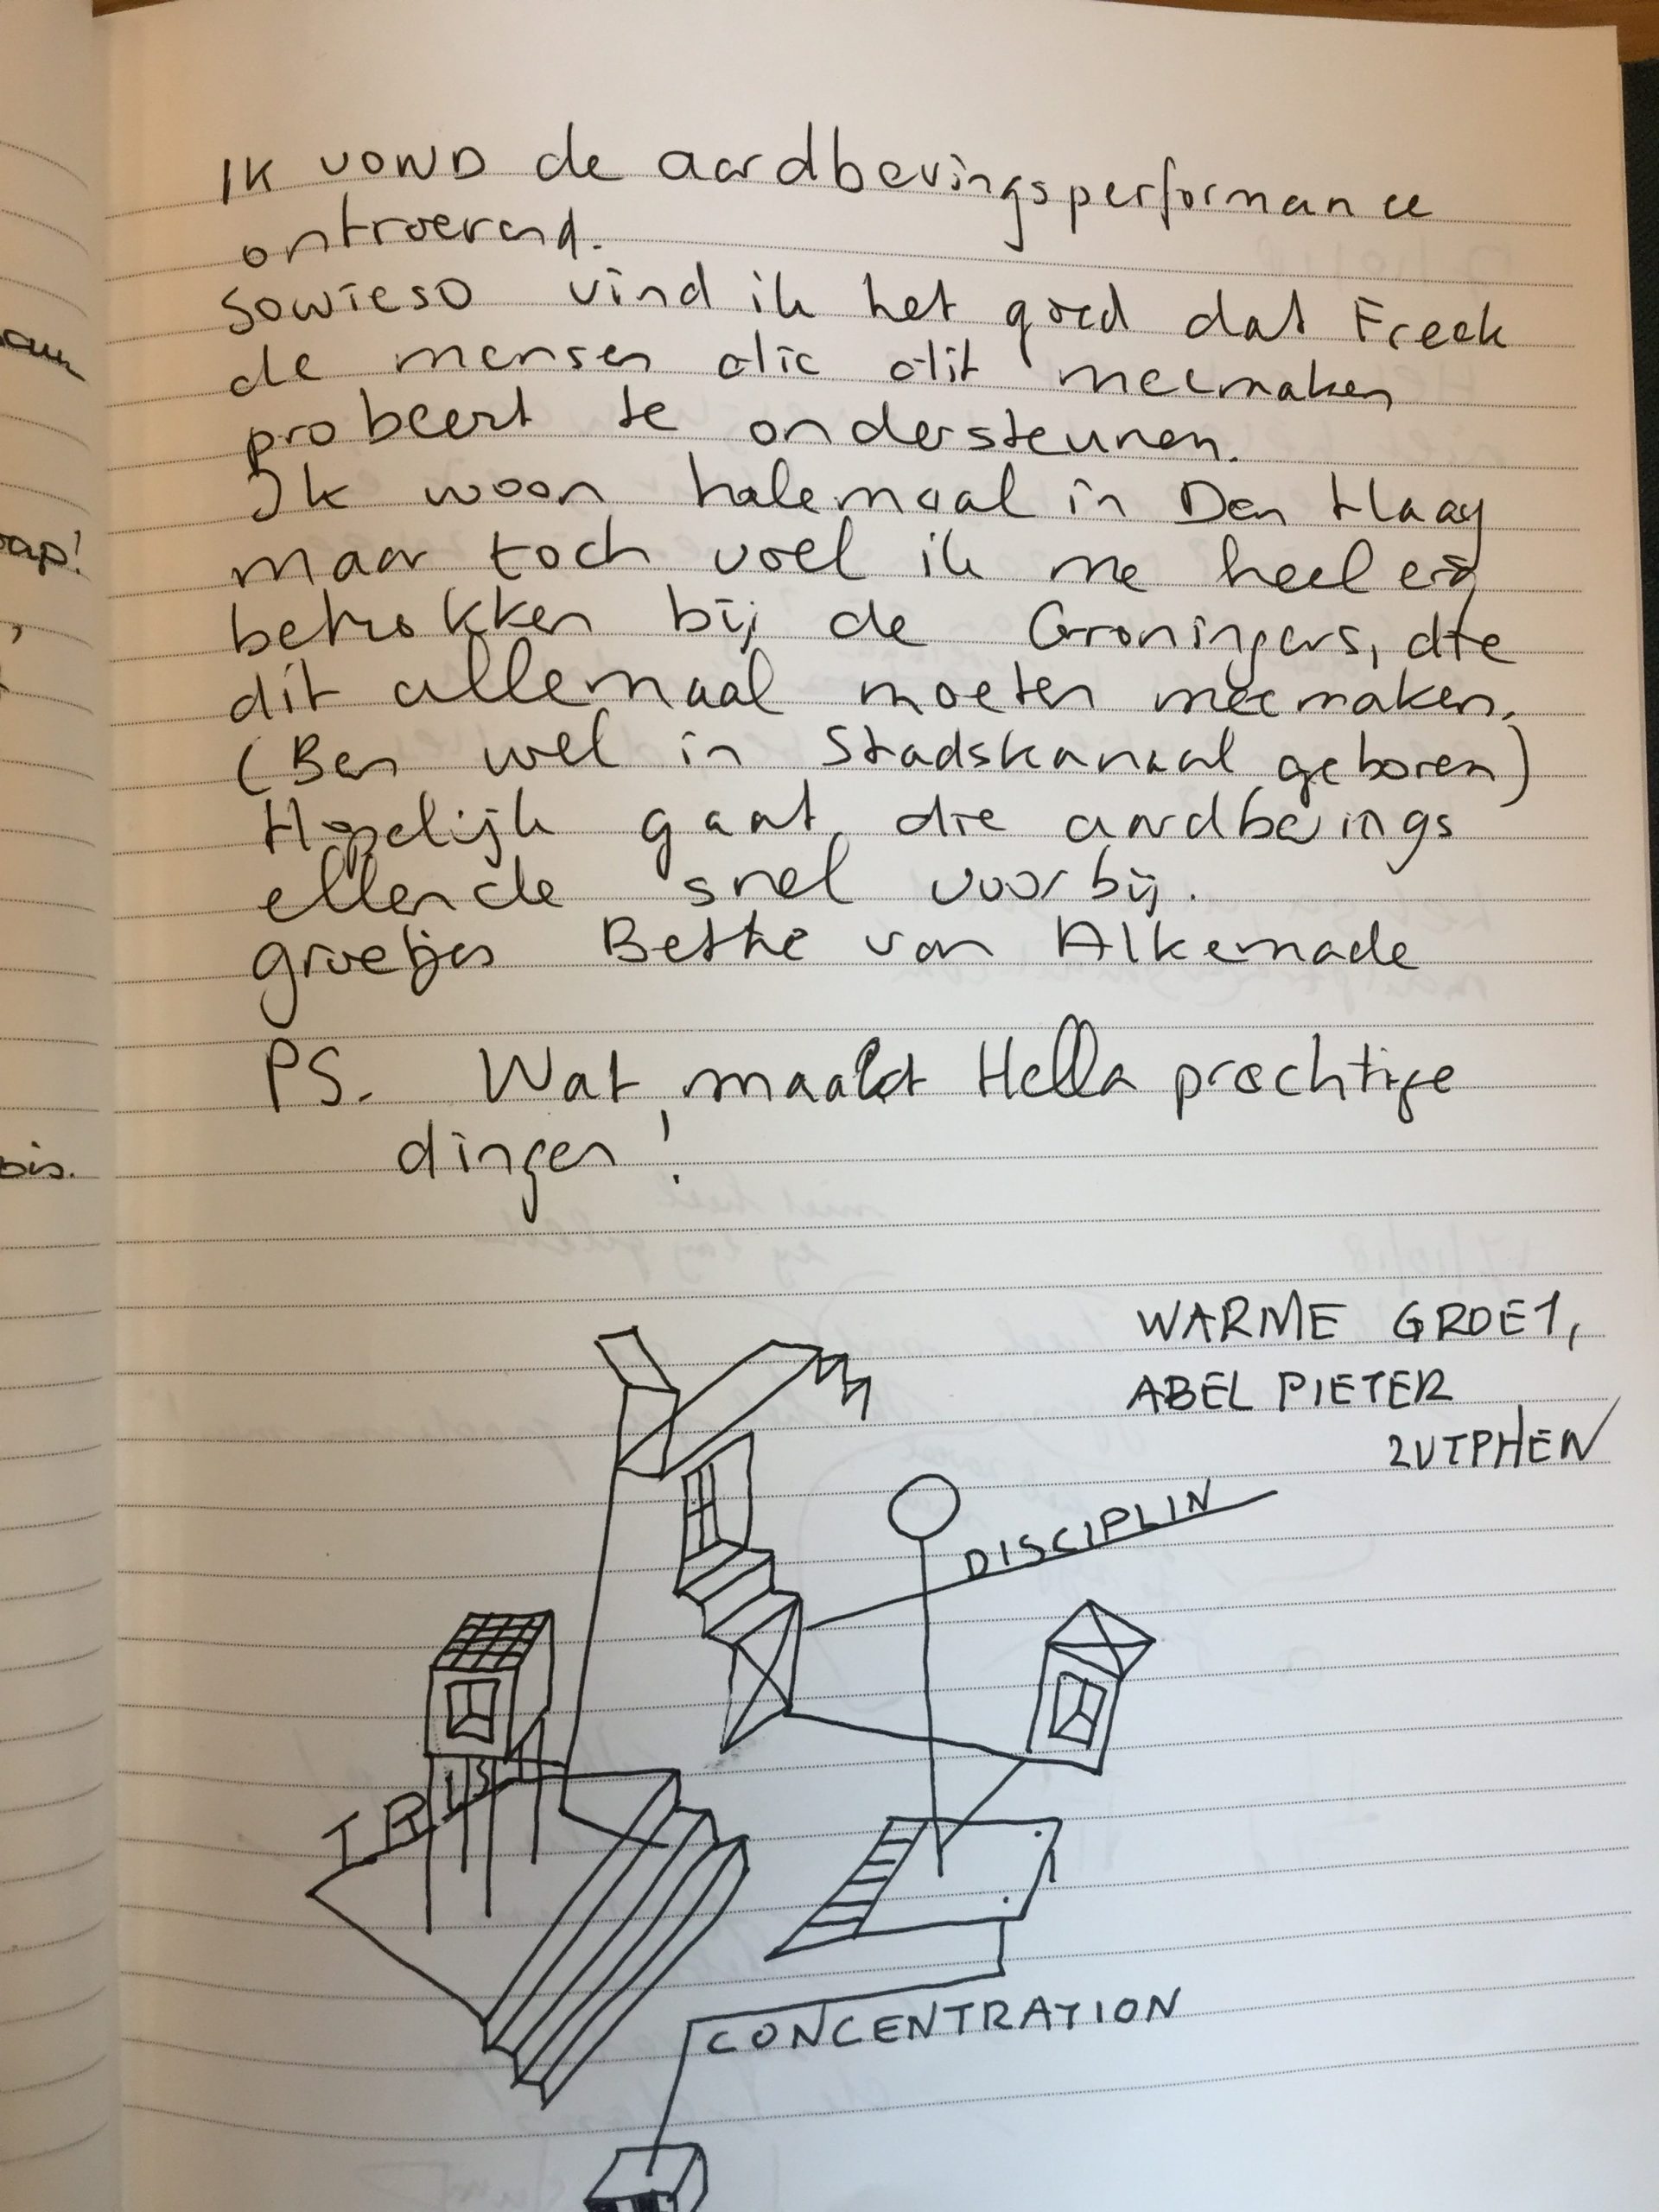 Ik vond de aardbevingsperformance
ontroerend.
Sowieso vind ik het goed dat Freek
de mensen die dit meemaken
probeert te ondersteunen.
Ik woon helemaal in Den Haag
maar toch voel ik me heel erg
betrokken bij de Groningers, die
dit allemaal moeten meemaken.
(Ben wel in Stadskanaal geboren)
Hopelijk gaat die aardbevings
ellende snel voorbij.
groetjes Bethe van Alkemade
PS. Wat maakt Hella prachtige
dingen!
WARME GROET,
ABEL PIETER
ZUTPHEN
DISCIPLIN
TRUST
CONCENTRATION
rap!